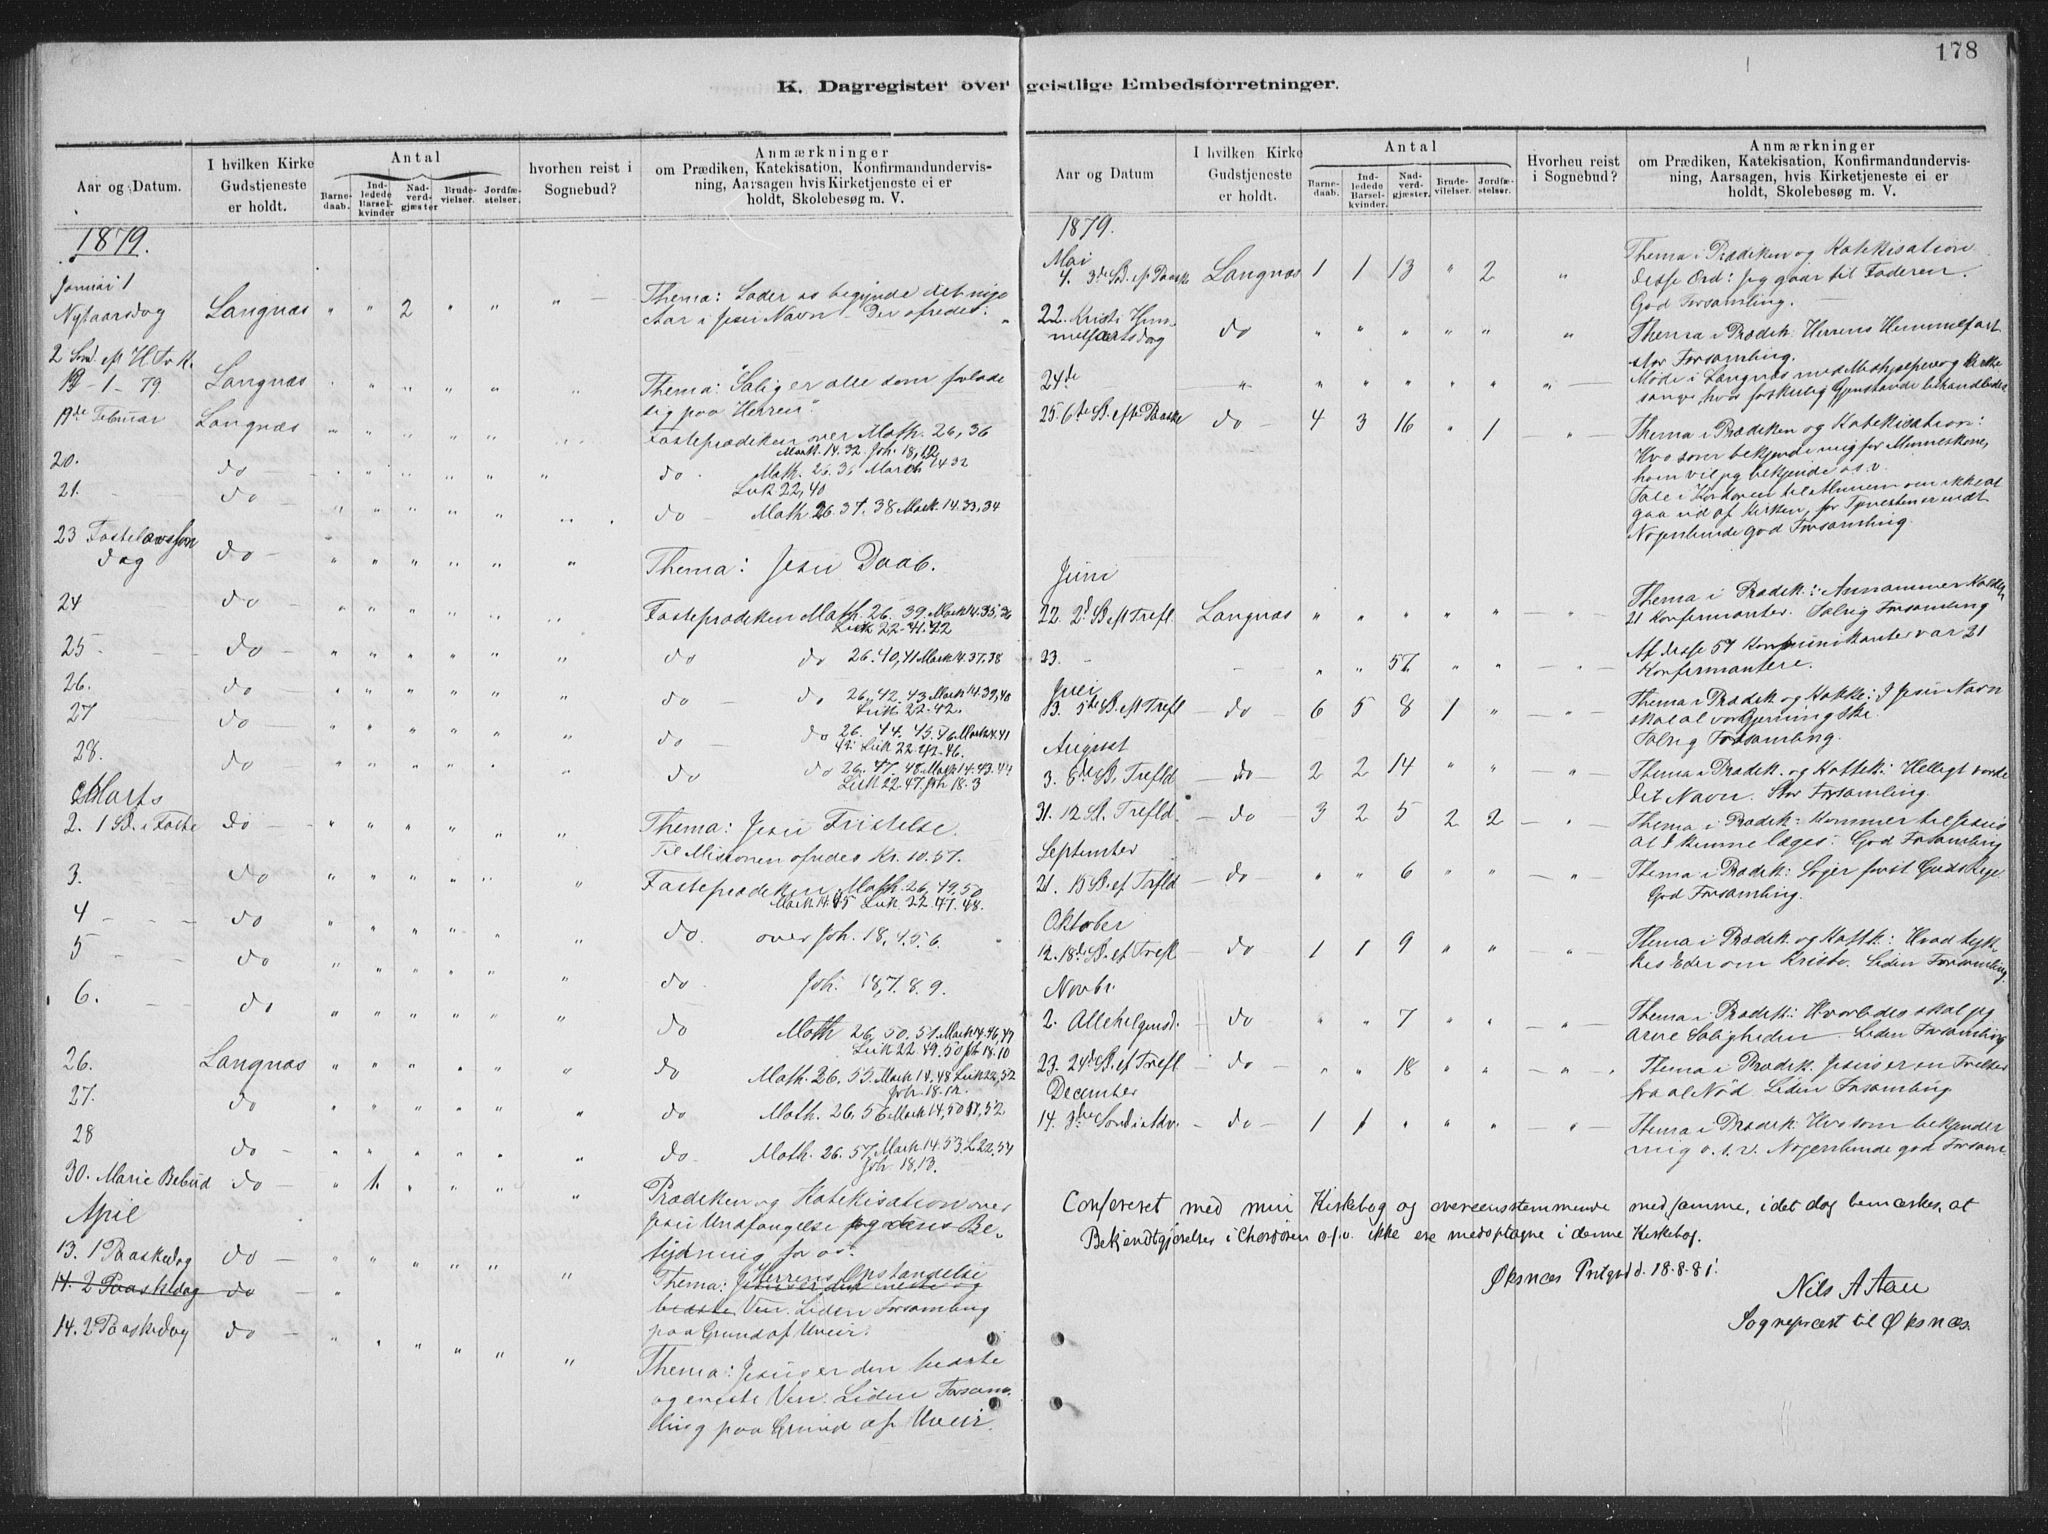 178
K. Dagregister over geistlige Embedsforretninger.
Aar og Datum.
I hvilken Kirke Gudstjeneste er holdt.
Antal
Barne-daab.
Ind-ledede Barsel-kvinder
Nad-verd-gjæster
Brude-vielser.
Jordfæ-stelser.
hvorhen reist i Sognebud?
Anmærkninger
om Prædiken, Katekisation, Konfirmandundervis-
ning, Aarsagen hvis Kirketjeneste ei er
holdt, Skolebesøg m. V.
1879.
Januar 1
Nytaarsdag Langnæs " " 2 " " " Thema: Lader os begynde det nye
Aar i Jesu Navn – Der ofredes.
2 Sønd. eft H. Tr. K.
19 - 1 - 79. Langnæs " " " " " " Thema: Salig er alle som forlade
sig paa Herren"
19de Februar Langnæs " " " " " Fasteprædiken over Math. 26, 36
Mark. 14.32 Joh. 18,1,2
20. do " " " " " " do Math. 26.36 Mark 14 32
Luk 22,40
21. do " " " " " do Math. 26.37.38 Mark. 14.33,34
23 Fastelavnssøn
dag do " " " " " " Thema: Jesu Daab.
24 do " " " " " Fasteprædiken Math. 26.39 Mark 14.35,36
Luk 22-41.42
25 do " " " " " " do do 26.40,41 Mark 14.37,38
26. do " " " " " " do do 26,42.43 Mark 14.39,40
Luk. 22-42.
27 do " " " " " " do do 26.44.45.46 Mark 14.41
42 Luk 22-42-46.
28. do " " " " " " do do 26.47.48 Mark 14.43.44
Luk 22.47 Joh 18.3
Marts
2. 1 Sd. i Faste do " " " " " " Thema: Jesu Fristelse.
Til Missionen ofredes Kr. 10.57.
3. do " " " " " " Fasteprædiken Math. 26,49,50
Mark 14.45 Luk. 22.47.48.
4 do " " " " " do over Joh. 18,4.5 6.
5 do " " " " " " do Joh. 18,7.8.9.
6. do " " " " " " do Math 26.50.51 Mark 14.46,47
Luk 22 49.50 Joh 18.10
26. Langnæs " " " " " " do Math. 26.55. Mark 14.48 Luk 22,52
Joh. 18.12.
27. do " " " " " " do Math. 26.56 Mark 14,50 51,52
28 do " " " " " " do Math. 26.57 Mark 14.53 L. 22.54
Joh. 18.13.
30. Marie Bebud do " 1 " " " " Prædiken og Katekisation over
Jesu Undfangelse og dens Be-
tydning for os.
April
13. 1 Paaskedag do " " " " " " Thema: Herrens Opstandelse
Jesus er den neste og
bedste Ven. Liden Forsamling
paa Grund af Uveir.
14. 2 Paaskedag do "
14. 2 Paaskedag do " " " " " " Thema: Jesus er den bedste
og eneste Ven. Liden Forsam-
ling paa Grund af Uveir.
Aar og Datum
I hvilken Kirke Gudstjeneste er holdt.
Antal
Barne-daab.
Ind-ledede Barsel-kvinder.
Nad-verd-gjæster.
Brude-vielser.
Jordfæ-stelser.
Hvorhen reist i Sognebud?
Anmærkninger
om Prædiken, Katekisation, Konfirmandundervis-
ning, Aarsagen, hvis Kirketjeneste ei er
holdt, Skolebesøg m. V.
1879.
Mai
4. 3de Sd. ef Paaske Langnæs 1 1 13 " 2 " Thema i Prædiken og Katekisation
disse Ord: Jeg gaar til Faderen.
God Forsamling.
22. Kristi Him-
melfartsdag do " " " " " " Thema i Prædik: Herrens Himmelfart
stor Forsamling.
24de " " " " " " " Møde i Langnæs med Medhjelpere og Kirke
sanger, hvor forskjellig Gjenstande behandledes
25 6te S. efter Paaske do 4 3 16 " 1 " Thema i Prædiken og Katekisation:
Hvo som bekjender mig for Menneskene,
ham vil jeg bekjende o.s.v.
Tale i Kordøren til Almuen om ikke at
gaa ud af Kirken, før Tjenesten er endt
Nogenlunde god Forsamling.
Juni
22. 2d S. eft Trefl. Langnæs " " " " " " Thema i Prædik.: Annammer
21 Konfirmanter. Talrig Forsamling
23. " " 57 " " " Af disse 57 Kommunikanter var 21
Konfirmantere.
Juli
13. 5te S. eft Trefl do 6 5 8 1 " " Thema i Prædik og Katek: I Jesu Navn
skal al vor Gjerning ske.
Talrig Forsamling.
August
3. 8de S. Trefld do 2 2 14 " " " Thema i Prædik. og Katek: Helligt vorde
dit Navn. Stor Forsamling.
31. 12 S. Trefld. do 3 2 5 2 2 " Thema i Prædik: Kommer til Jesus
at I kunne læges. God Forsamling
September
21. 15 S. ef Trefld do " " 6 " " " Thema i Prædik: Søger først Guds Rige
God Forsamling.
Oktober
12. 18de S. ef Trefl. do 1 1 9 " " " Thema i Prædik og Katek: Hvad tyk-
kes Eder om Kristo. Liden Forsamling.
Novbr.
2. Allehelgensd. do " " 7 " " " Thema i Prædik: Hvorledes skal jeg
arve Saligheden. Liden Forsamling
23. 24de S. ef Trefl. do " " 18 " " " Thema i Prædik. Jesus er en Frelser
fra al Nød. Liden Forsamling
December
14. 3die Sønd i Adv. do 1 1 " " " " Thema i Prædik: Hvo som bekjender
mig o.s.v. Nogenlunde god Forsaml.
Confereret med min Kirkebog og overensstemmende med samme, idet dog bemærkes, at
Bekjendtgjørelser i Chordøren o.s.v. ikke ere medoptagne i denne Kirkebog.
Øksnæs Præstgrd d. 18-8-81.
Nils A Aau
Sognepræst til Øksnæs.